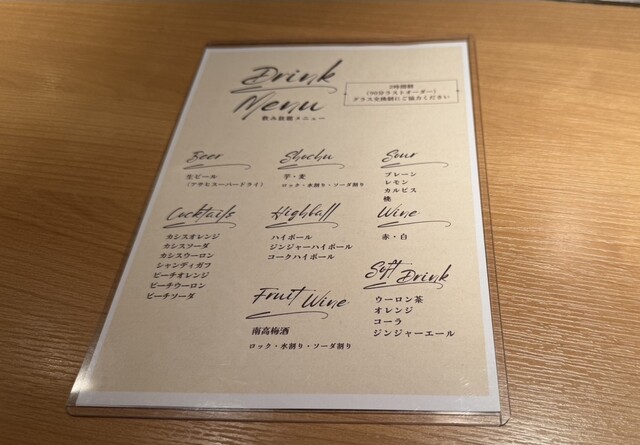 Drink
Menu
飲み放題メニュー
2時間制
(90分ラストオーダー)
グラス交換制にご協力ください
Beer
生ビール
(アサヒスーパードライ)
Shochu
芋・麦
ロック・水割り・ソーダ割り
Sour
プレーン
レモン
カルピス
桃
Cocktails
カシスオレンジ
カシスソーダ
カシスウーロン
シャンディガフ
ピーチオレンジ
ピーチウーロン
ピーチソーダ
Highball
ハイボール
ジンジャーハイボール
コークハイボール
Wine
赤・白
Fruit Wine
南高梅酒
ロック・水割り・ソーダ割り
Soft Drink
ウーロン茶
オレンジ
コーラ
ジンジャーエール